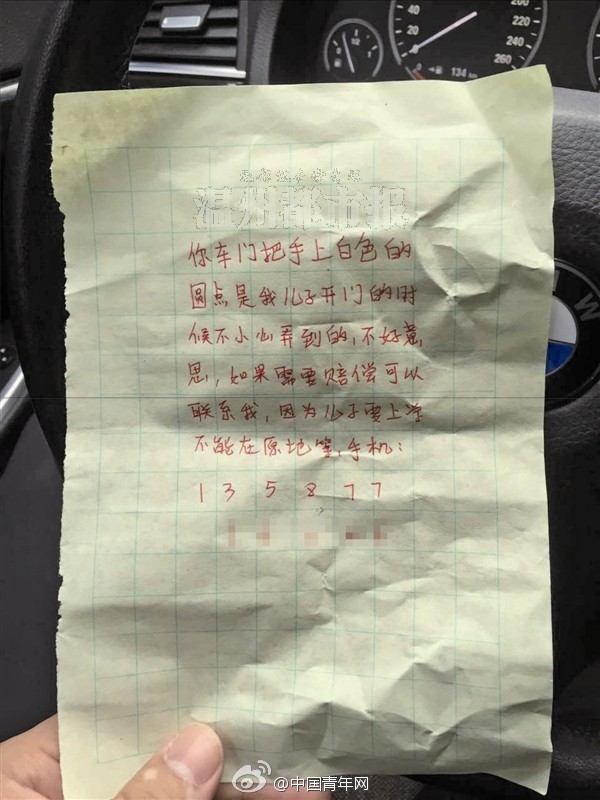 40
20
0
200
220
240
260
1/2
134 km
温州都市报
你车门把手上白色的
圆点是我儿子开门的时
候不小心弄到的,不好意
思,如果需要赔偿可以
联系我,因为儿子要上学
不能在原地等,手机:
1 3 5 8 7 7
M W
@中国青年网